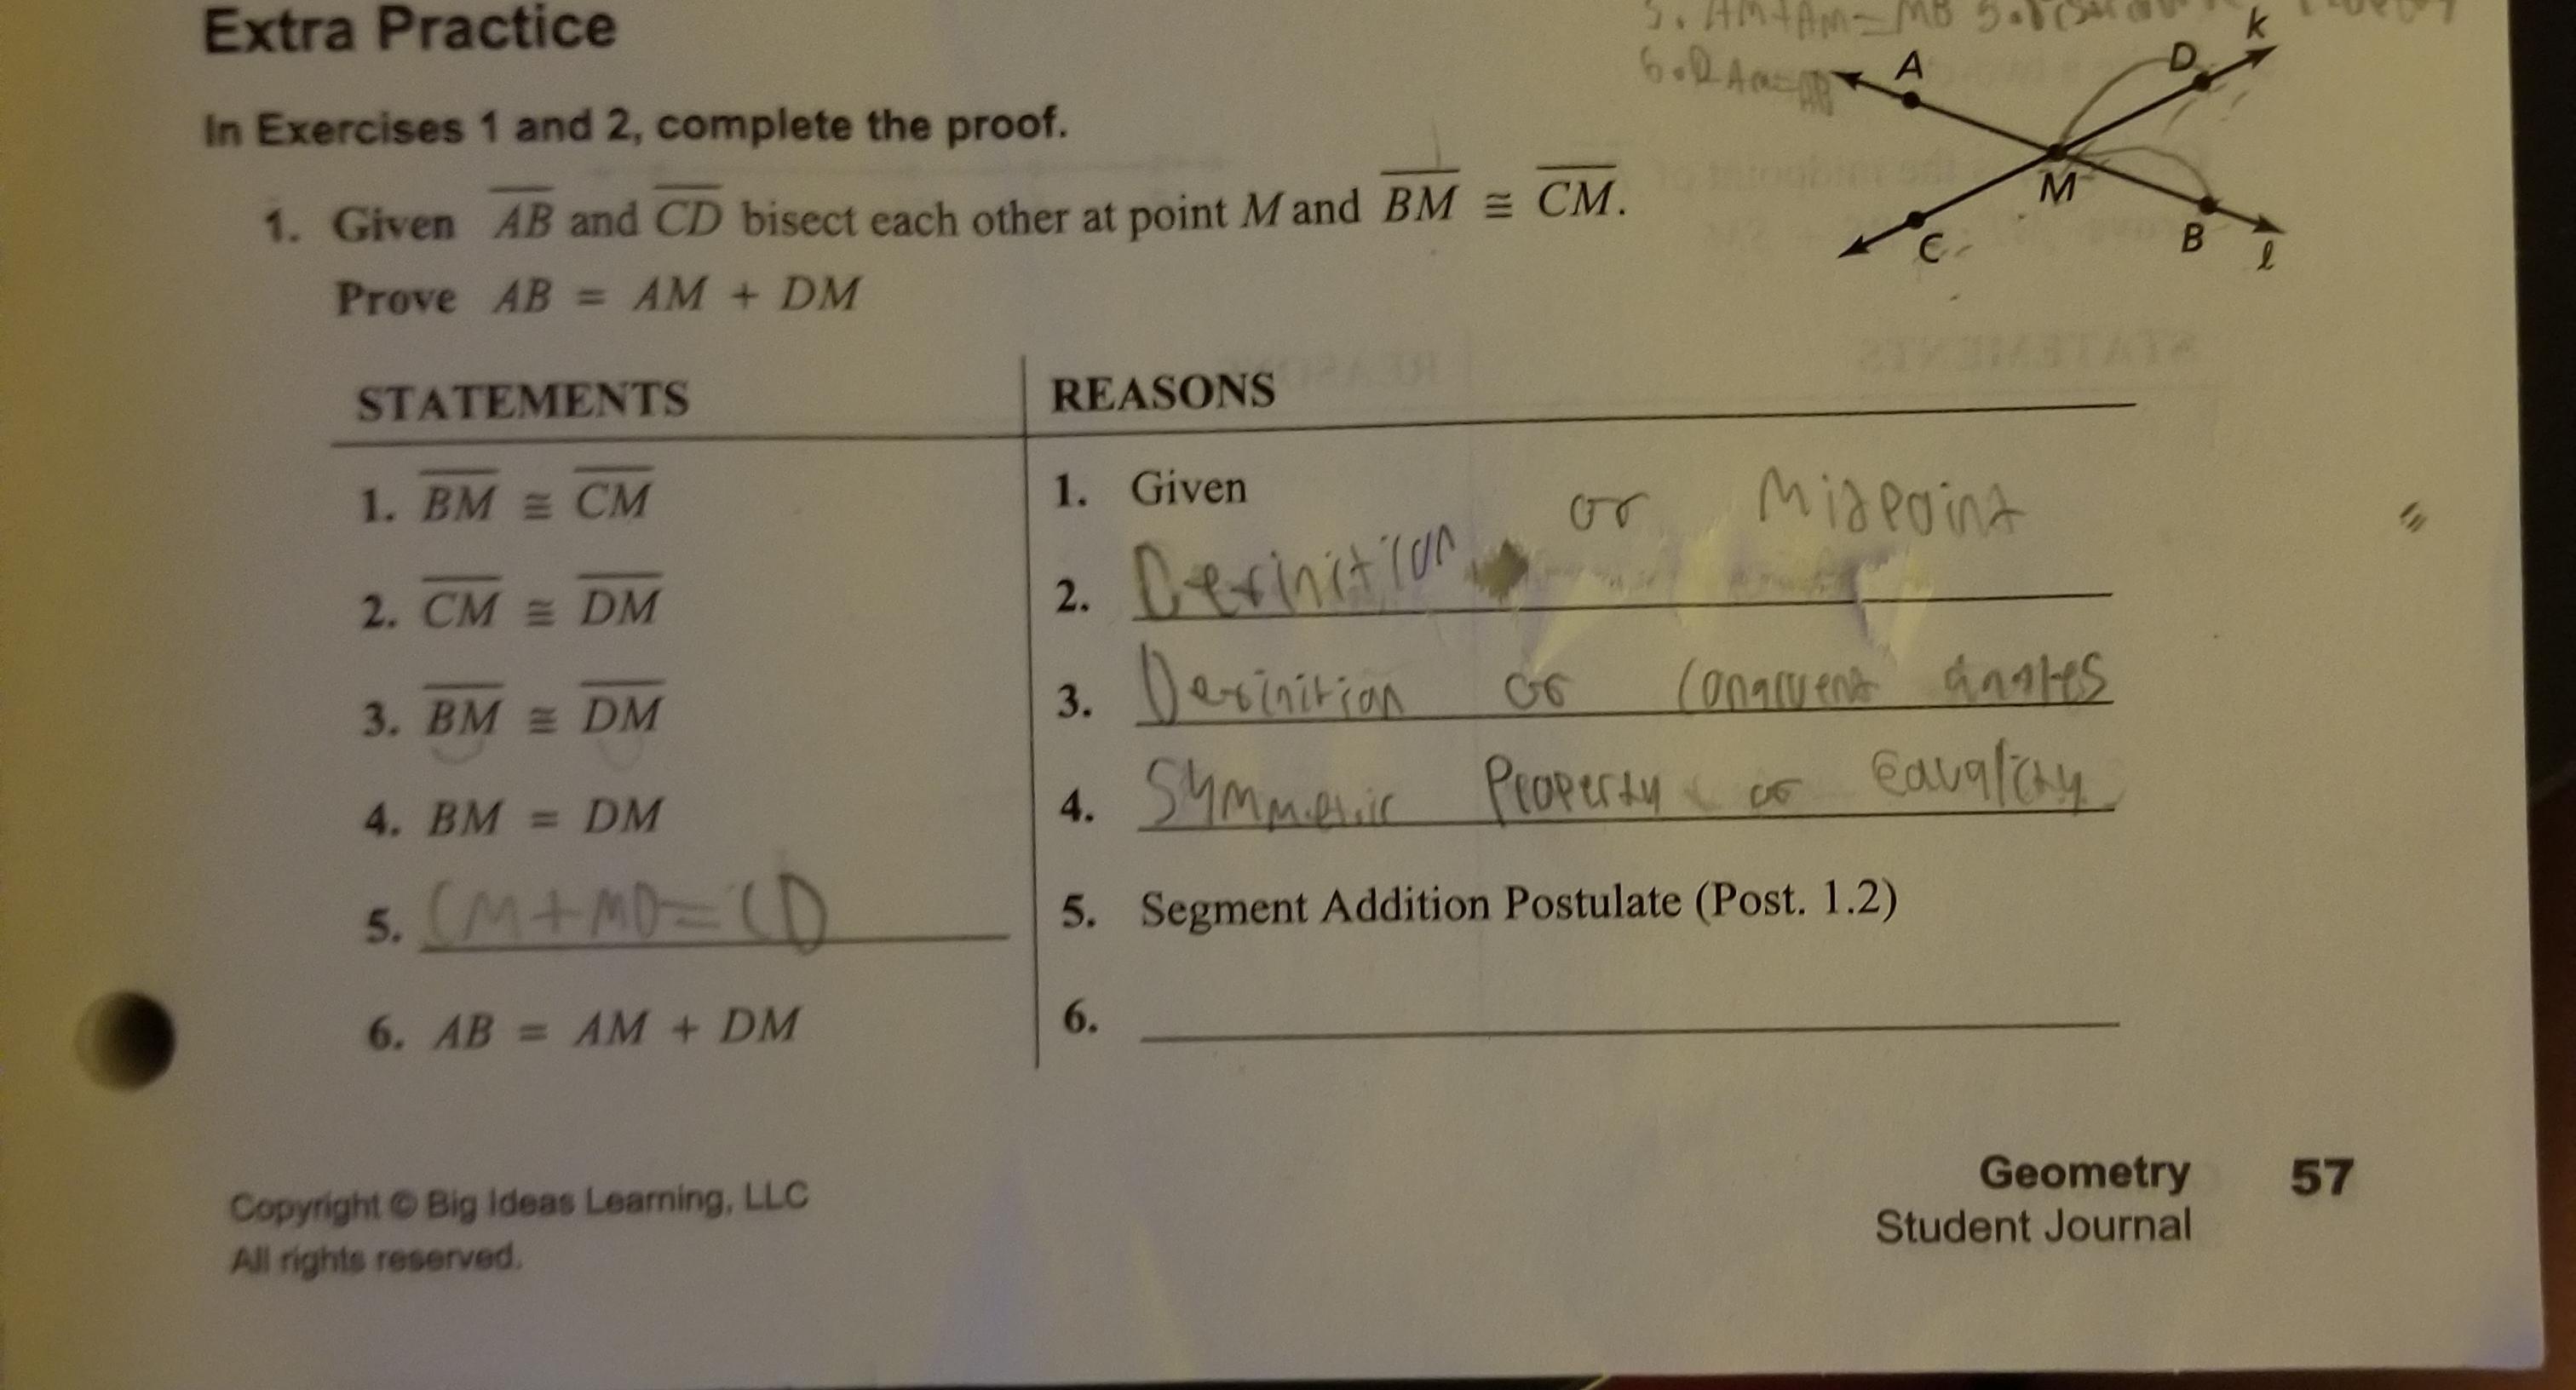 Extra Practice
5. AM+AM=MB 5.
6. 2AM=AB
In Exercises 1 and 2, complete the proof.
A D k M C B ℓ
1. Given AB and CD bisect each other at point M and BM ≅ CM.
Prove AB = AM + DM
STATEMENTS REASONS
1. BM ≅ CM 1. Given
of Midpoint
2. CM ≅ DM 2. Definition
3. BM ≅ DM 3. Definition of Congruent angles
4. BM = DM 4. Symmetric Property of Equality
5. CM+MD=CD 5. Segment Addition Postulate (Post. 1.2)
6. AB = AM + DM 6.
Copyright © Big Ideas Learning, LLC
All rights reserved.
Geometry 57
Student Journal